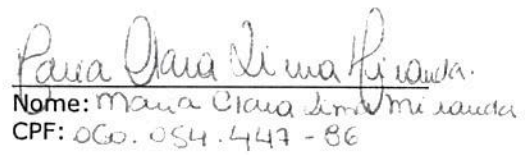 Maria Clara Lima Miranda.
Nome: Maria Clara Lima Miranda
CPF: 060.054.447-86